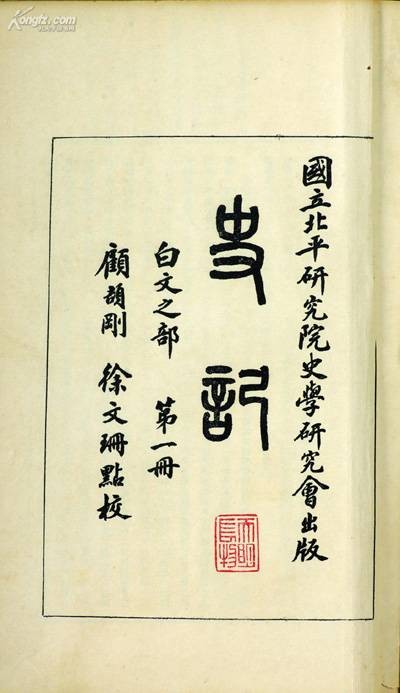 Kongfz.com
國立北平研究院史學研究會出版
史記
白文之部 第一冊
顧頡剛 徐文珊點校